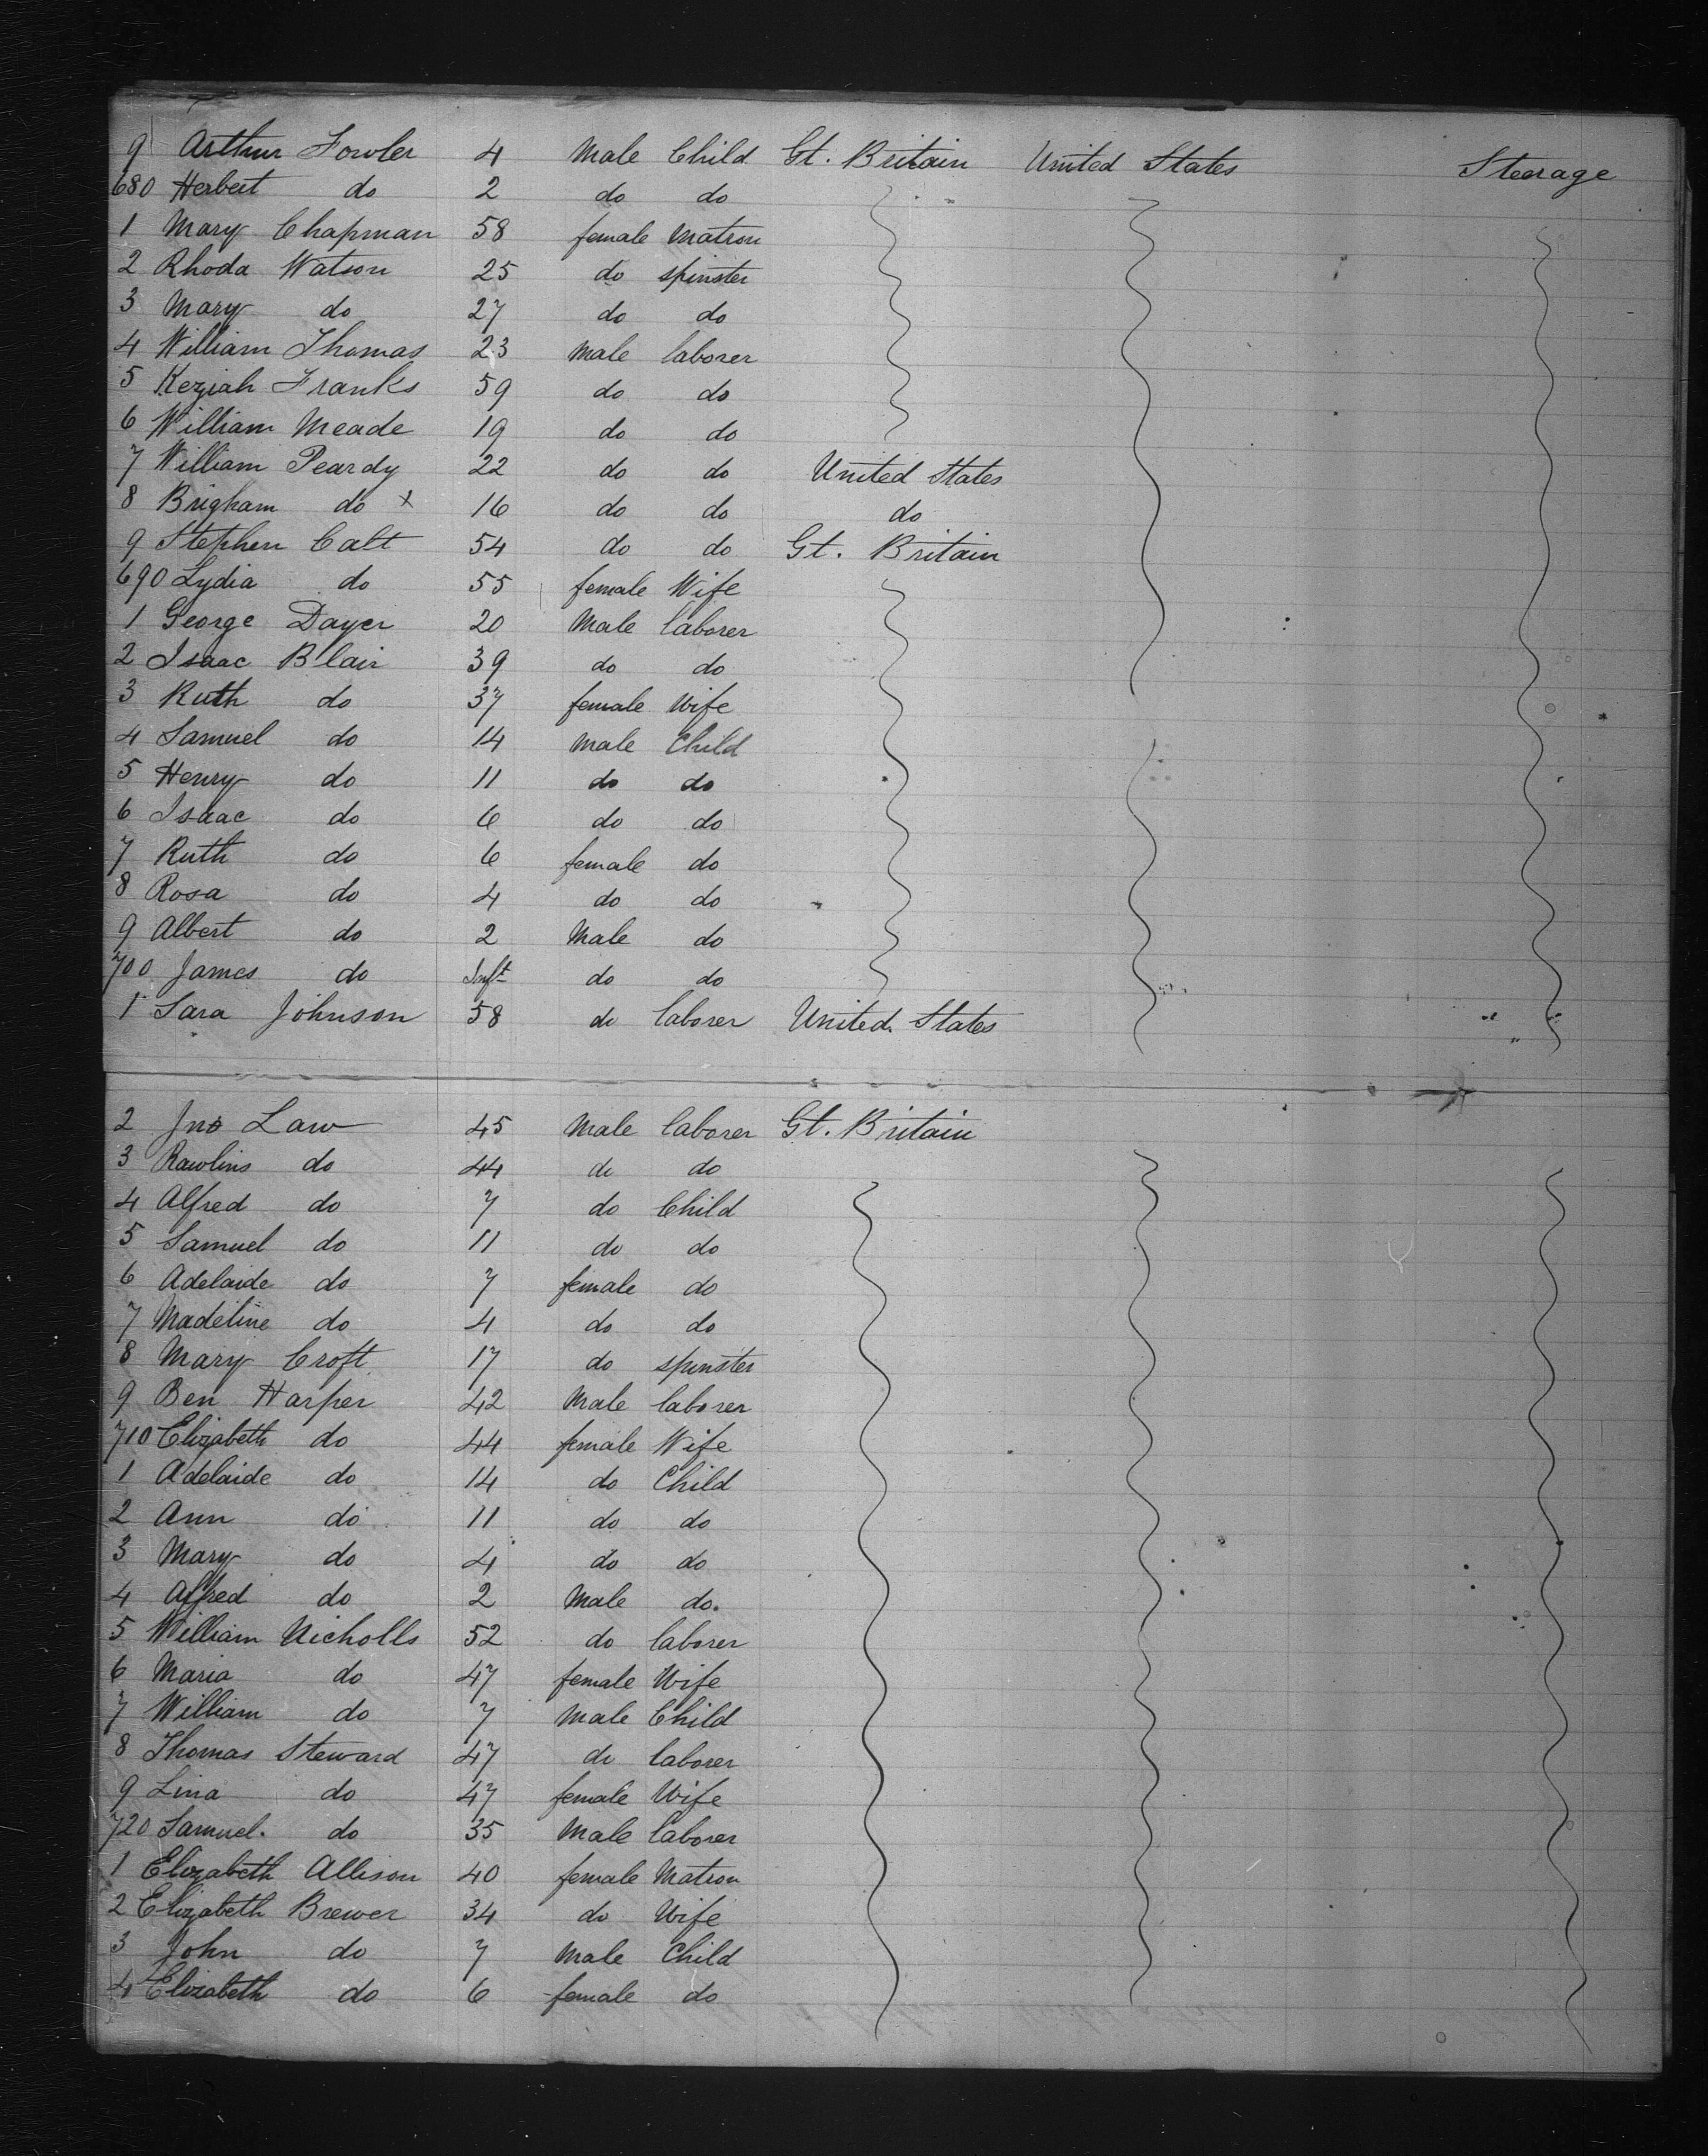 9 Arthur Fowler 4 Male Child Gt. Britain United States Steerage
680 Herbert do 2 do do
1 Mary Chapman 58 female Matron
2 Rhoda Watson 25 do spinster
3 Mary do 27 do do
4 William Thomas 23 Male laborer
5 Keziah Franks 59 do do
6 William Meade 19 do do
7 William Peardy 22 do do United States
8 Brigham do x 16 do do do
9 Stephen Catt 54 do do Gt. Britain
690 Lydia do 55 female Wife
1 George Dayer 20 Male laborer
2 Isaac Blair 39 do do
3 Ruth do 37 female Wife
4 Samuel do 14 Male Child
5 Henry do 11 do do
6 Isaac do 6 do do
7 Ruth do 6 female do
8 Rosa do 4 do do
9 Albert do 2 Male do
700 James do Inft do do
1 Sara Johnson 58 do laborer United States
2 Jno Law 45 Male laborer Gt. Britain
3 Rawlins do 44 do do
4 Alfred do 7 do Child
5 Samuel do 11 do do
6 Adelaide do 7 female do
7 Madeline do 4 do do
8 Mary Croft 17 do spinster
9 Ben Harper 42 Male laborer
710 Elizabeth do 44 female Wife
1 Adelaide do 14 do Child
2 Ann do 11 do do
3 Mary do 4 do do
4 Alfred do 2 Male do.
5 William Nicholls 52 do laborer
6 Maria do 47 female Wife
7 William do 7 Male Child
8 Thomas Steward 47 do laborer
9 Lina do 47 female Wife
720 Samuel. do 35 Male laborer
1 Elizabeth Allison 40 female Matron
2 Elizabeth Brewer 34 do Wife
3 John do 7 Male Child
4 Elizabeth do 6 female do